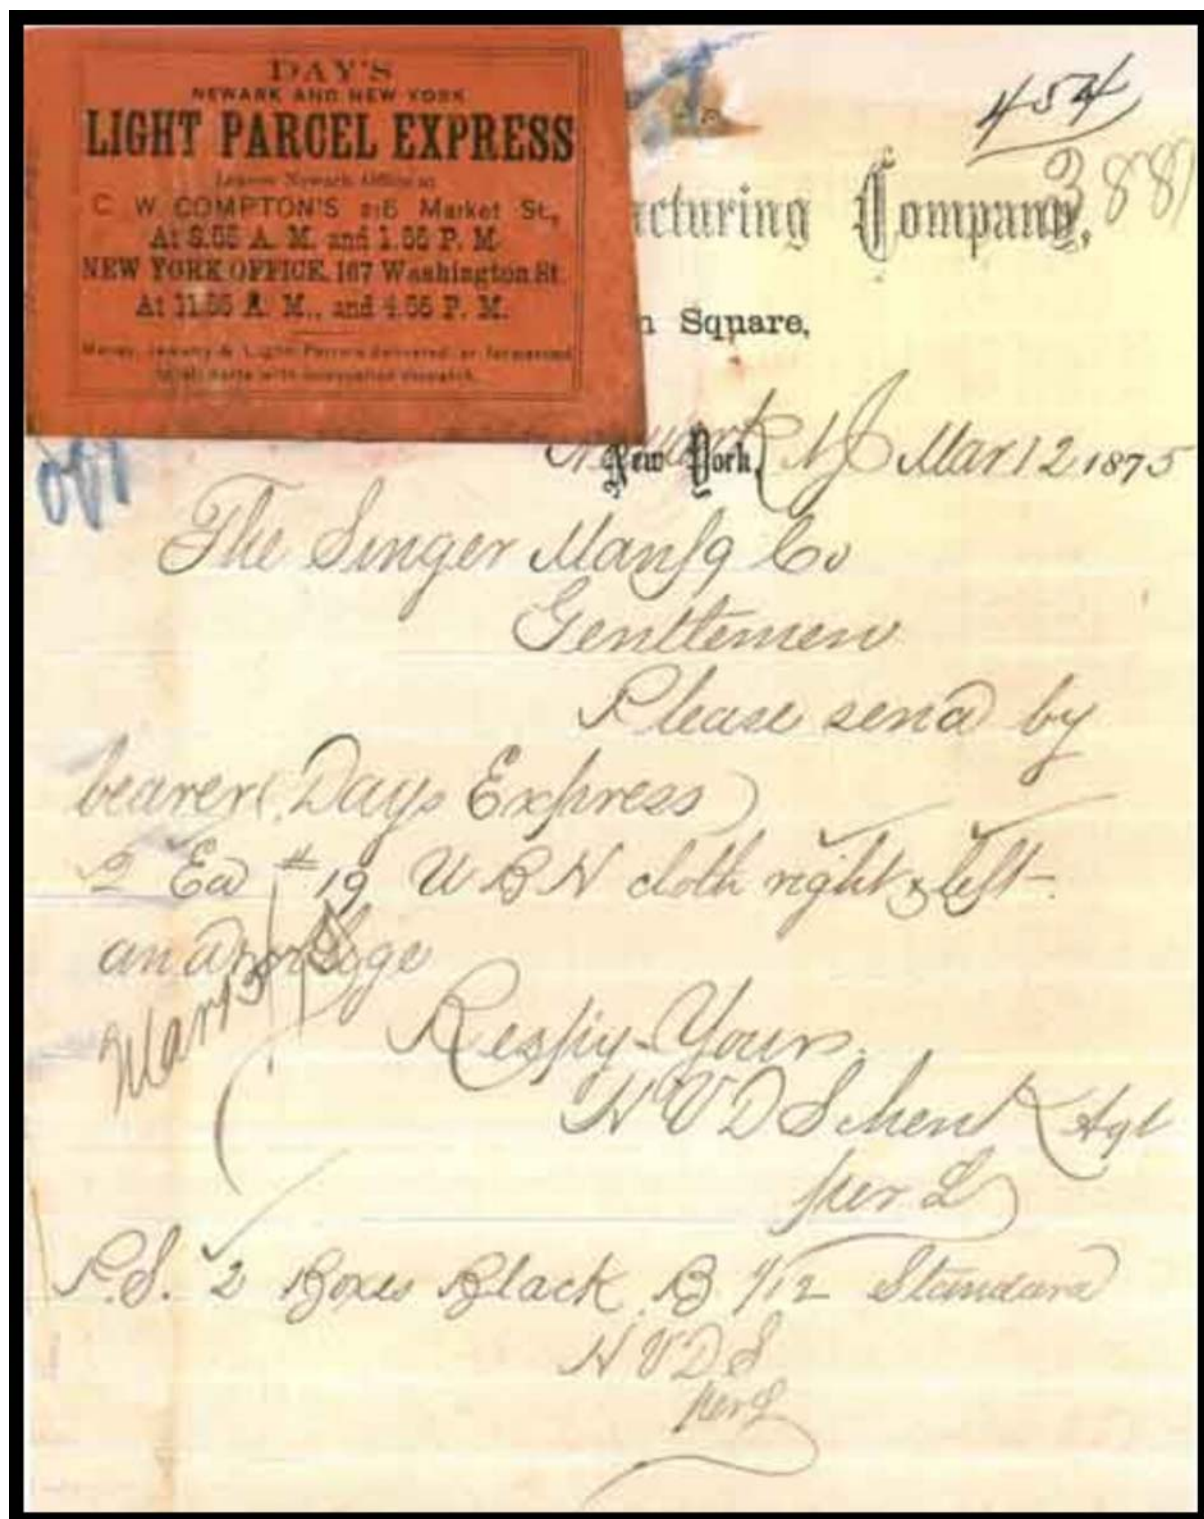 DAY'S
NEWARK AND NEW YORK
LIGHT PARCEL EXPRESS
Leaves Newark Office at
C. W. COMPTON'S Market St.,
At 8.55 A. M. and 1.55 P. M.
NEW YORK OFFICE, 167 Washington St.
At 11.55 A. M., and 4.55 P. M.
Money, Jewelry & Light Parcels delivered or forwarded
to all parts with unequalled dispatch.
454
3881
acturing Company,
n Square,
New York,
Newark NJ Mar 12 1875
The Singer Manfg Co
Gentlemen
Please send by
bearer (Days Express)
2 Ea # 19 U B H cloth right & left
and gge
Mar 13
Respy Yours
H V D Schenk Agt
per L
P.S. 2 Boxes Black B 1/12 Standard
H V D S
per L